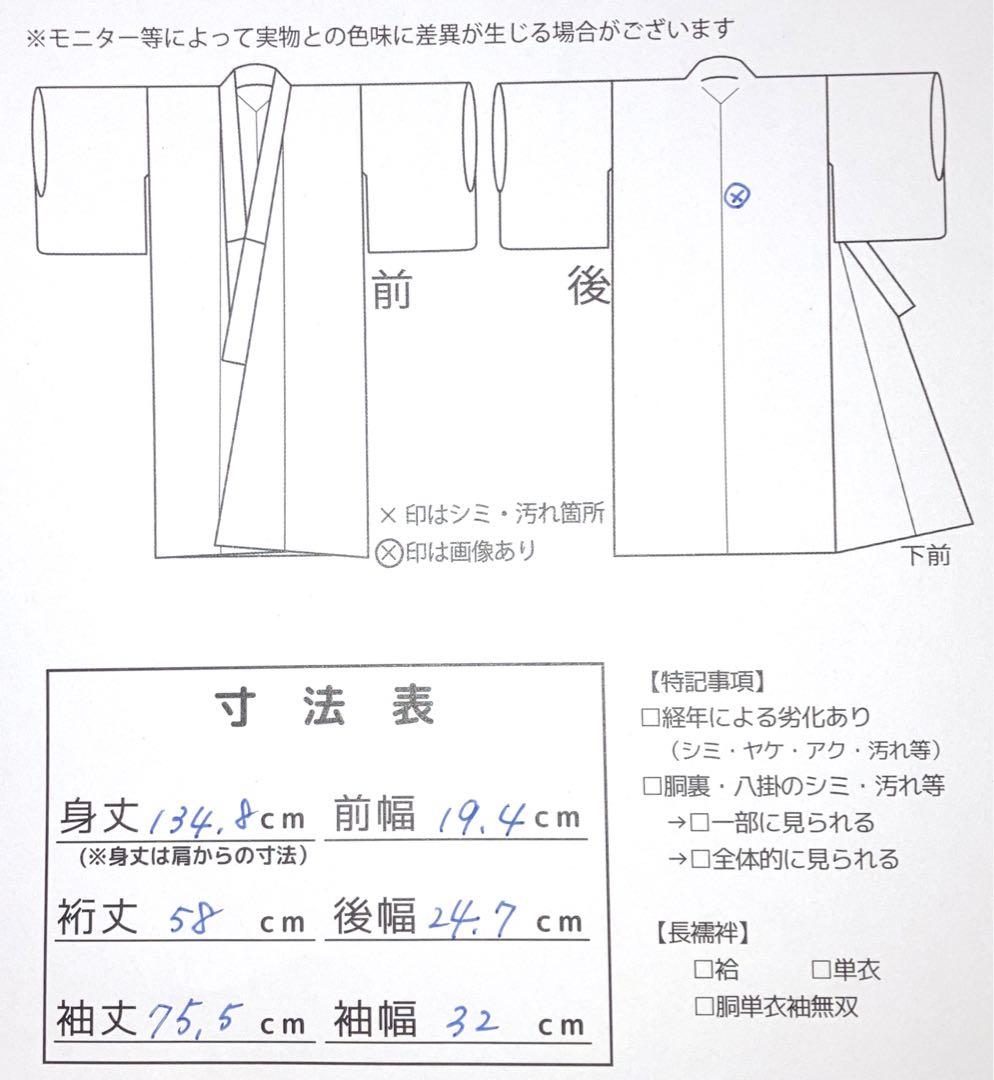 ※モニター等によって実物との色味に差異が生じる場合がございます
前
後
× 印はシミ・汚れ箇所
Ⓧ印は画像あり
下前
寸 法 表
身丈 134.8 cm 前幅 19.4 cm
(※身丈は肩からの寸法)
裄丈 58 cm 後幅 24.7 cm
袖丈 75.5 cm 袖幅 32 cm
【特記事項】
□経年による劣化あり
(シミ・ヤケ・アク・汚れ等)
□胴裏・八掛のシミ・汚れ等
→□一部に見られる
→□全体的に見られる
【長襦袢】
□袷 □単衣
□胴単衣袖無双